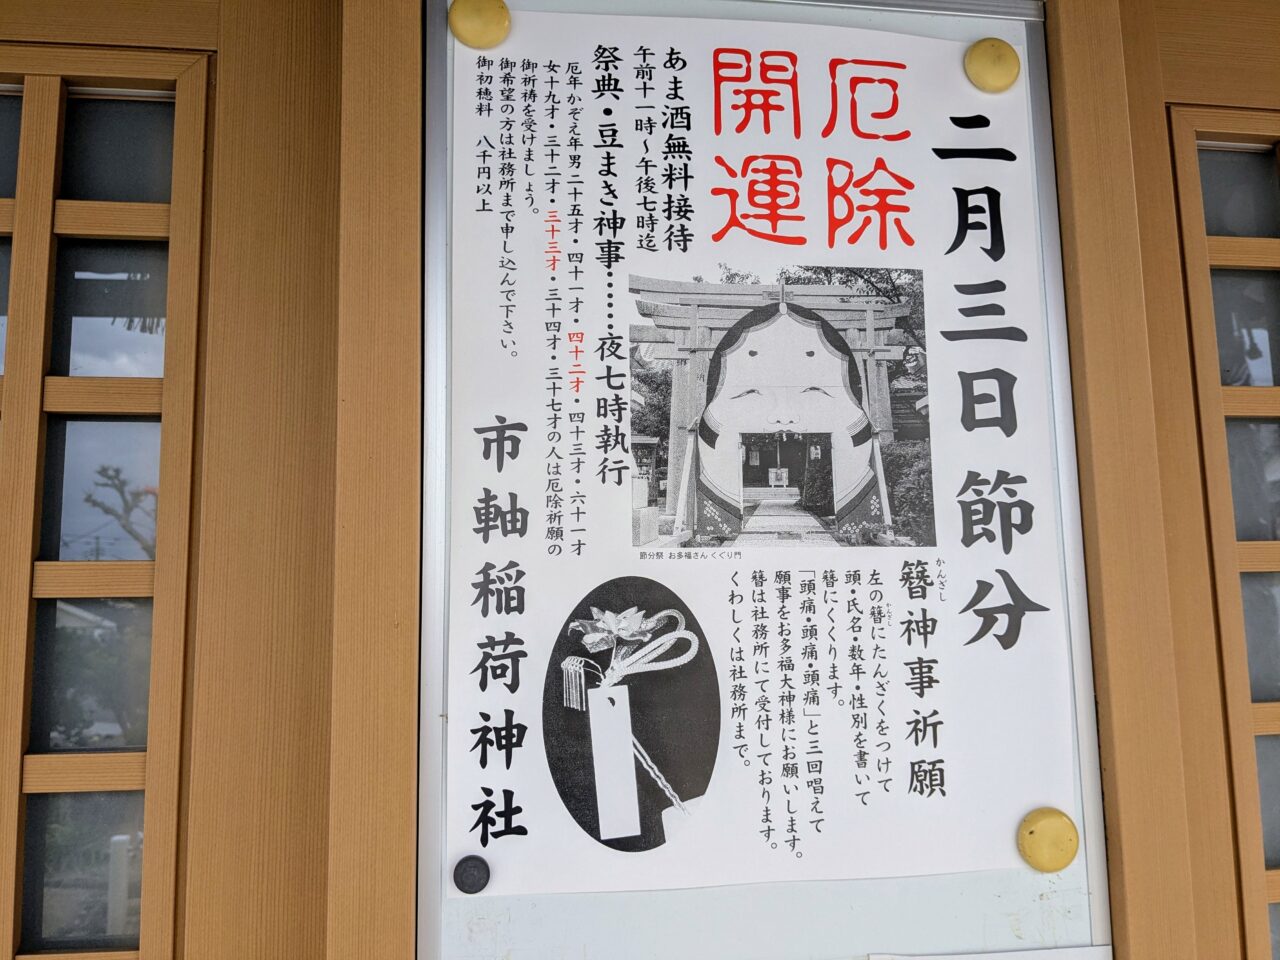 二月三日節分
厄除
開運
あま酒無料接待
午前十一時～午後七時迄
祭典・豆まき神事……夜七時執行
厄年かぞえ年男二十五才・四十一才・四十二才・四十三才・六十一才
女十九才・三十二才・三十三才・三十四才・三十七才の人は厄除祈願の
御祈祷を受けましょう。
御希望の方は社務所まで申し込んで下さい。
御初穂料　八千円以上
節分祭 お多福さん くぐり門
簪神事祈願
かんざし
左の簪にたんざくをつけて
かんざし
頭・氏名・数年・性別を書いて
簪にくくります。
「頭痛・頭痛・頭痛」と三回唱えて
願事をお多福大神様にお願いします。
簪は社務所にて受付しております。
くわしくは社務所まで。
市軸稲荷神社